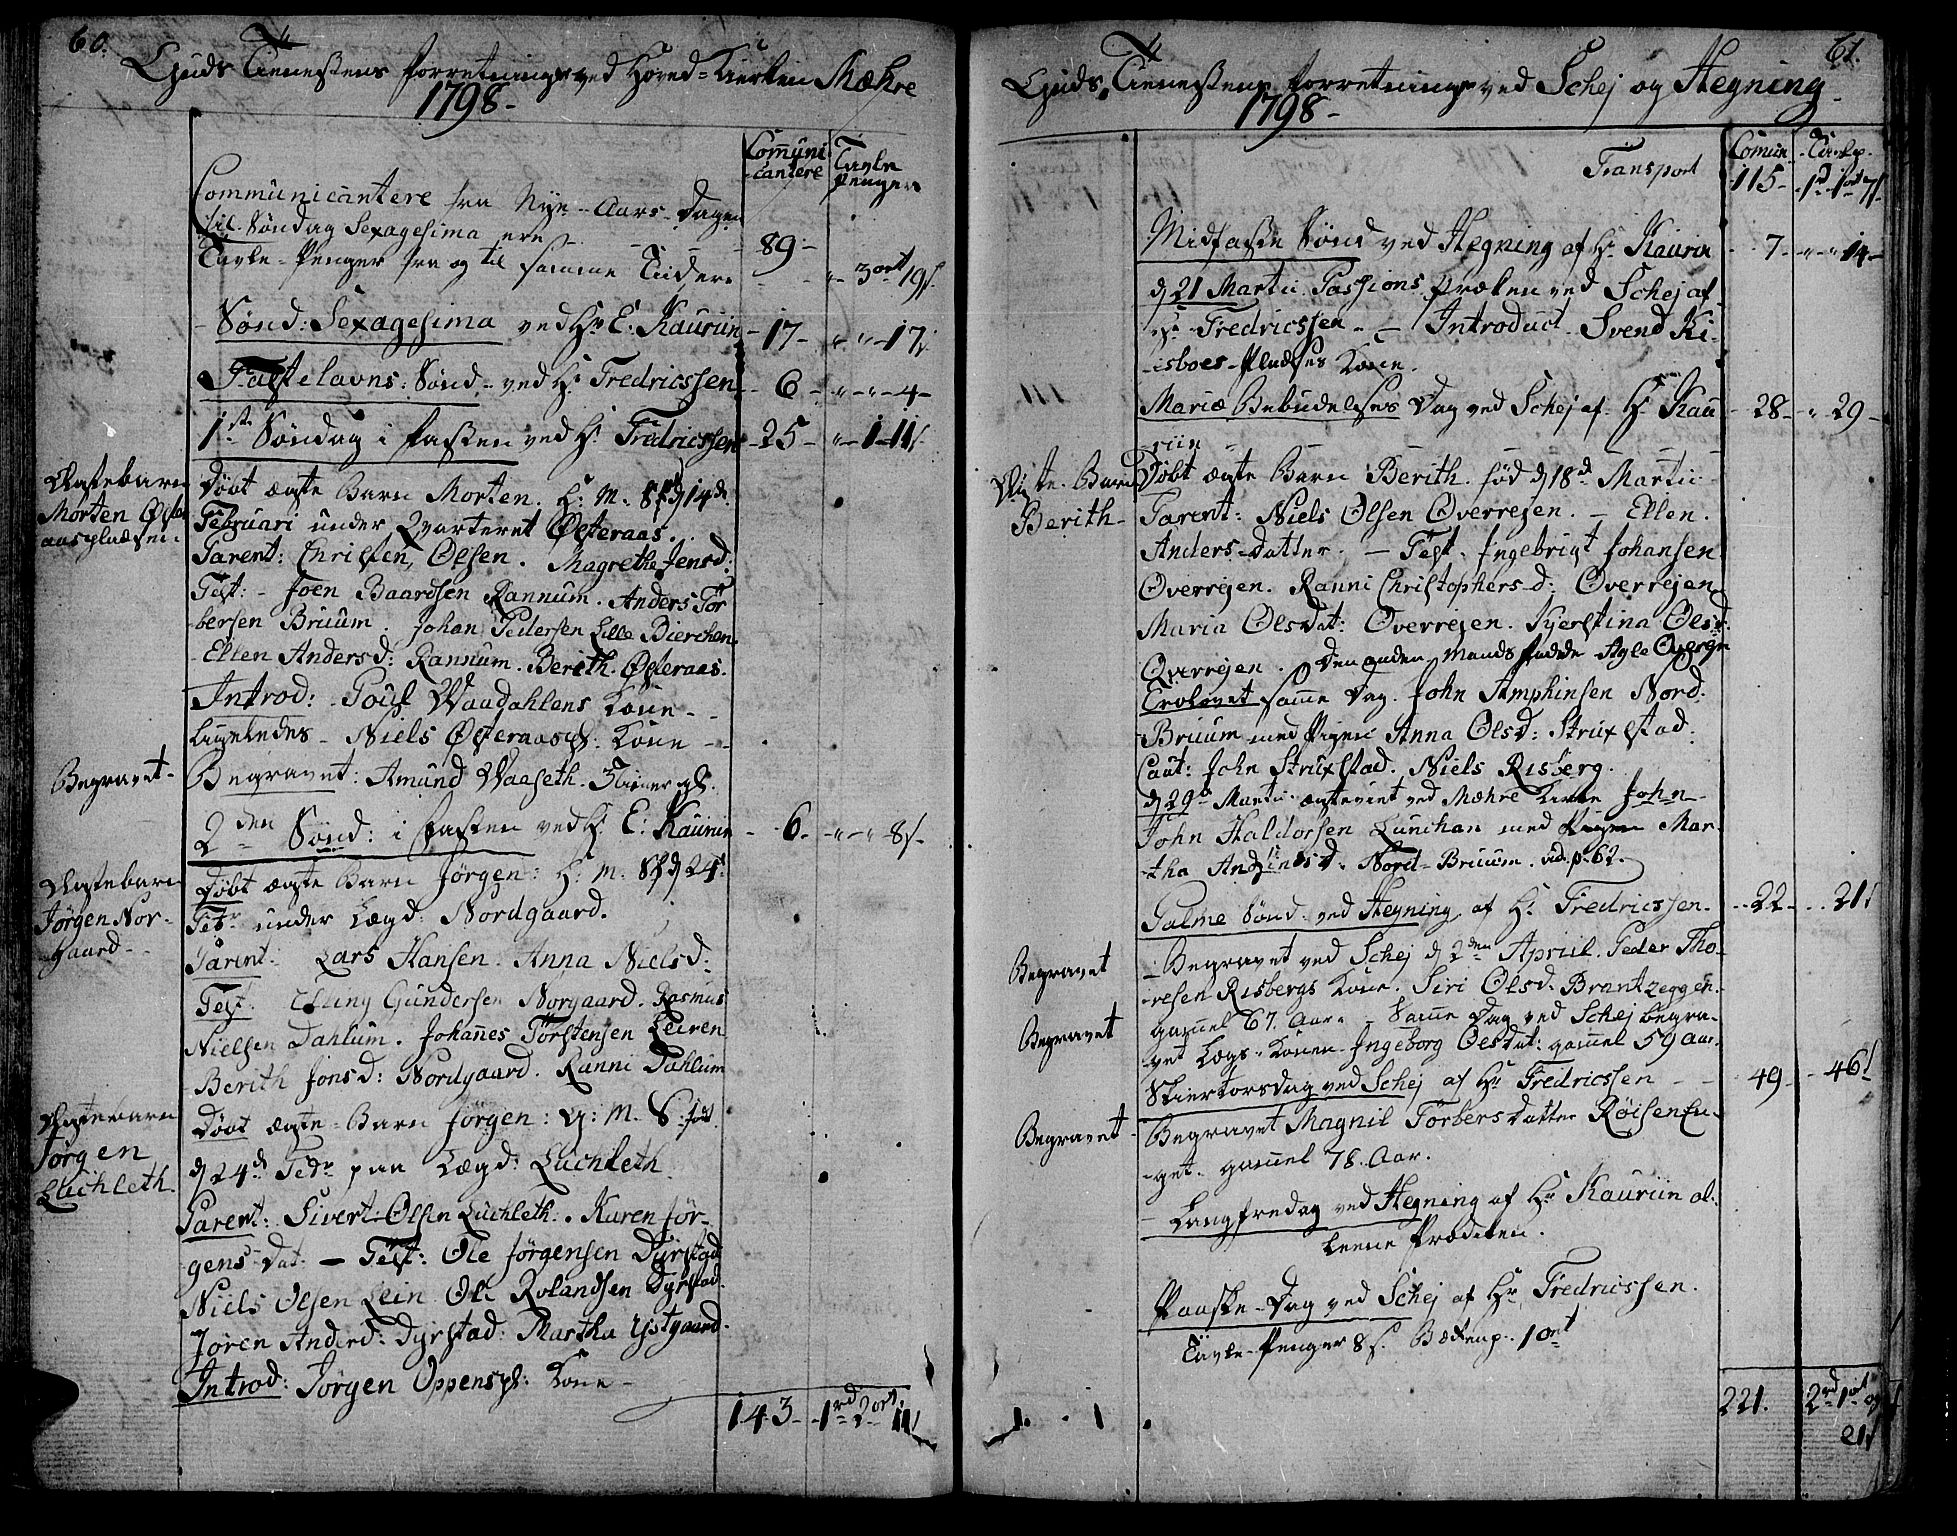 60.
Guds Tienestens Forretninger ved Hoved-Kierken Mæhre
1798-
Communi-
-cantere
Tavle
Penger
Communicantere fra Nye-Aars-Dagen
til Søndag Sexagesima ere - - - 89-
Tavle-Penger fra og til samme Tiider. - - „ 3 ort 19 s.
Sønd: Sexagesima ved Hr E. Kauriin - 17- „ „ - 17
Fastelavns: Sønd- ved Hr Fredricssen - 6- „ - „ - 4-
1ste Søndag i Fasten ved Hr Fredricssen - 25- „ - 1-11 s.
Ægtebarn
Morten Øster
aaspladsen.
Døbt ægte Barn Morten. H. M. d 14de
Februari under Qvarteret Østeraas.
Parent: Christen Olsen. Magrethe Jensd:
Test: - Joen Baardsen Rannum. Anders Tor
bersen Bruum. Johan Pedersen Lille Bierchen
Ellen Andersd: Rannum. Berith Østeraas.
Introd: Poul Waadahlens Kone - -
Ligeledes - Niels Østeraaspl: Kone - -
Begravet-
Begravet: Amund Waaseth.
2den Sønd: i Fasten ved Hr E: Kauriin - 6- „ - „ 8 s.
Ægtebarn
Jørgen Nor-
gaard-
Døbt ægte Barn Jørgen: H. M. d 24de
Febr under Lægd: Nordgaard.
Parent: Lars Hansen. Anna Nielsd:
Test: Elling Gundersen Norgaard. Rasmus
Nielsen Dahlum. Johannes Torstensen Leiren
Berith Jonsd: Nordgaard. Ranni Dahlum
Ægtebarn
Jørgen
Luchleth.
Døbt ægte-Barn Jørgen: M. S.
d 24de Febr paa Lægd: Luchleth
Parent: Sivert Olsen Luchleth. Karen Jør-
gens-Dat. - Test: Ole Jørgensen Dyrstad
Niels Olsen Lein. Ole Rolandsen Dyrstad.
Joren Andersd: Dyrstad: Martha Ystgaard.
Introd: Jørgen Oppenspl: Kone -
143- 1rd 2 ort 11 s
61.
Guds Tienestens Forretninger ved Schej og Hegning
1798-
Comun
Tavlep.
Transport 115- 1rd 1 ort 7 s
Midfaste Sønd ved Hegning af Hr Kauriin - 7- „ „ 14-
d 21 Martii Passions Præken ved Schej af
Hr Fredricssen - - Introduct. Svend Ki-
esboes-Pladses Kone.
Mariæ Bebudelses Dag ved Schej af Hr Kau - 28- „ 29-
riin
Ægte-Barn
Berith-
Døbt ægte Barn Berith. fød d 18de Martii
Parent: Niels Olsen Overrejen. - Ellen.
Anders-datter. - Test. Ingebrigt Johansen
Overrejen. Ranni Christophers-d: Overrejen
Maria Olsdat: Overrejen. Kyerstina Olsd.
Overrejen. Den anden Mands fadde Agle Overejn
Trolovet samme Dag. John Amphinsen Nord.
Bruum med Pigen Anna Olsd: Struxstad.
Caut: John Struxstad. Niels Risberg.
d 29de Martii ægteviet ved Mæhre Kirke John
John Haldorsen Lunchan med Pigen Mar-
tha Nord-Bruum. vid. p. 62.
Palme Sønd ved Hegning af Hr Fredricssen. - 22- 21 s
Begravet
- Begravet ved Schej d 2den Apriil. Peder Tho-
resen Risbergs Kone. Siri Olsd. Brantzeggen.
gammel 67. Aar. Samme Dag ved Schej begra-
Begravet
vet Lægs-Konen Ingeborg Olsdat: gammel 59 Aar.
Skiertorsdag ved Schej af Hr Fredricssen - - 49- 46 s
Begravet-
Begravet Magnil Torbersdatter Røisen
get. gammel 78. Aar.
Langfredag ved Hegning af Hr Kauriin al-
leene Prædiken.
Paaske-Dag ved Schej af Hr Fredricssen.
Tavle-Penger 8 s. Bækenp. 1 ort
221. 2rd 1 ort og
21 s